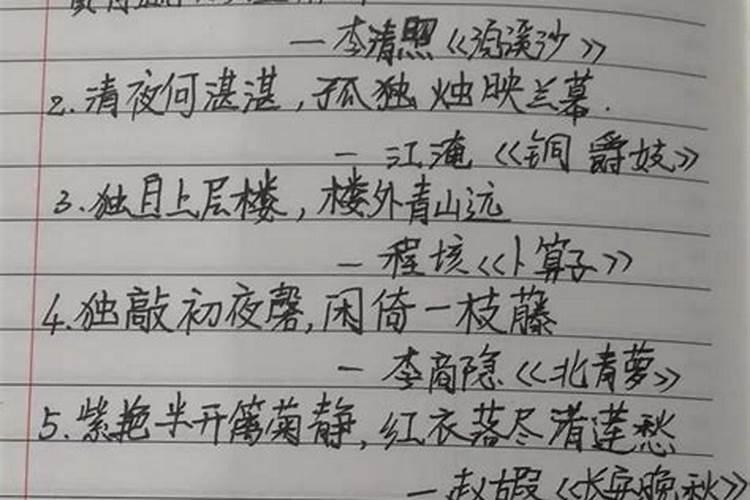 —李清照《浣溪沙》
2.清夜何湛湛，孤独烛映兰幕.
—江淹《铜爵妓》
3.独自上层楼，楼外青山远
—程垓《卜算子》
4.独敲初夜磬,闲倚一枝藤
—李商隐《北青萝》
5.紫艳半开篱菊静,红衣落尽渚莲愁
—赵嘏《长安晚秋》